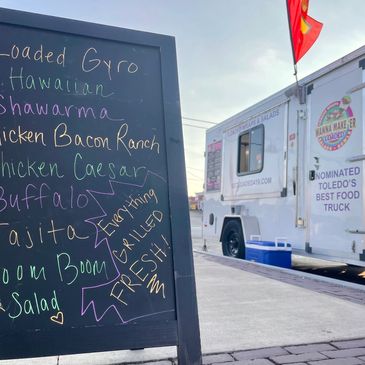 Loaded Gyro
Hawaiian
Shawarma
Chicken Bacon Ranch
Chicken Caesar
Buffalo
Fajita
Boom Boom
Salad
Everything
GRILLED
FRESH!
& SALADS
WANNA MAKE
NOMINATED
TOLEDO'S
BEST FOOD
TRUCK